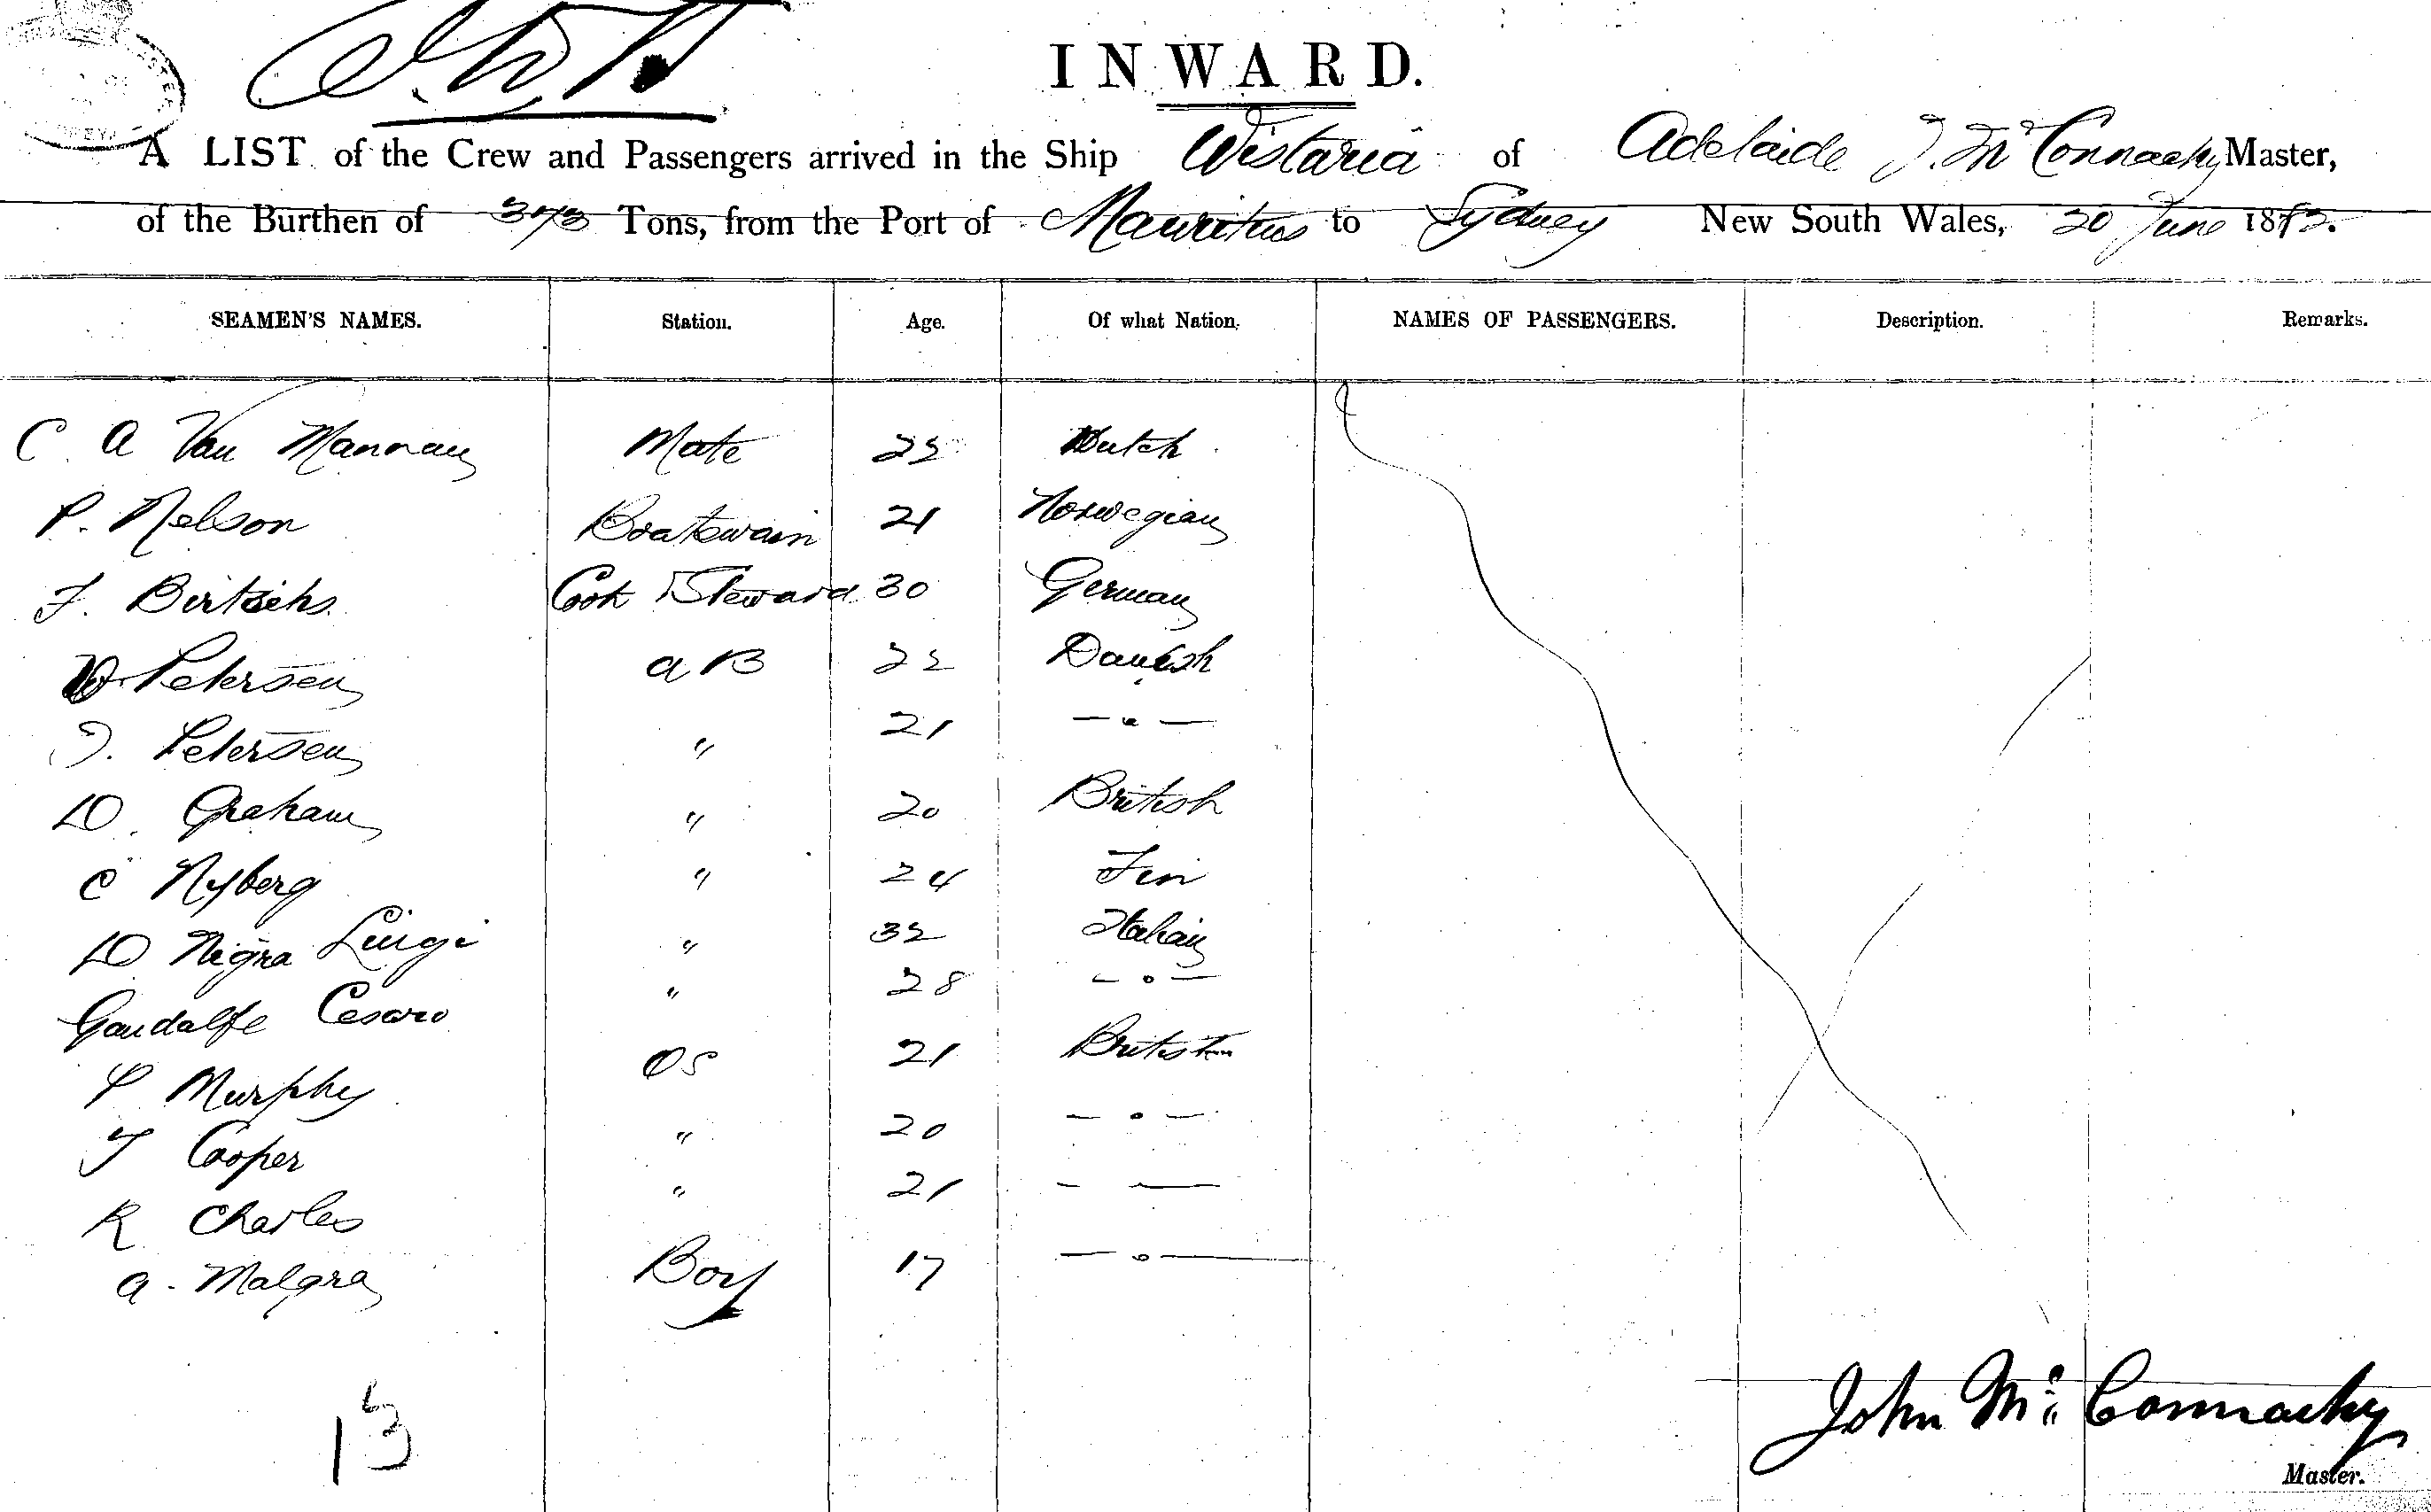 INWARD.
A LIST of the Crew and Passengers arrived in the Ship Wistaria of Adelaide J. McConnachy Master,
of the Burthen of 373 Tons, from the Port of Mauritius to Sydney New South Wales, 20 June 1882.
SEAMEN'S NAMES. Station. Age. Of what Nation. NAMES OF PASSENGERS. Description. Remarks.
C A Van Mannan Mate 25 Dutch
P. Nelson Boatswain 21 Norwegian
F. Cook Steward 30 German
Petersen a B 22 Danish
J. Petersen " 21 — " —
D. Graham " 20 British
C Nyberg " 24 Fin
D Nigra Luigi " 32 Italian
Gandalfe Cesaro " 28 — " —
P Murphy OS 21 British
T Cooper " 20 — " —
R Charles " 21 — —
A. Malgra Boy 17 — " —
13
John McConnachy
Master.